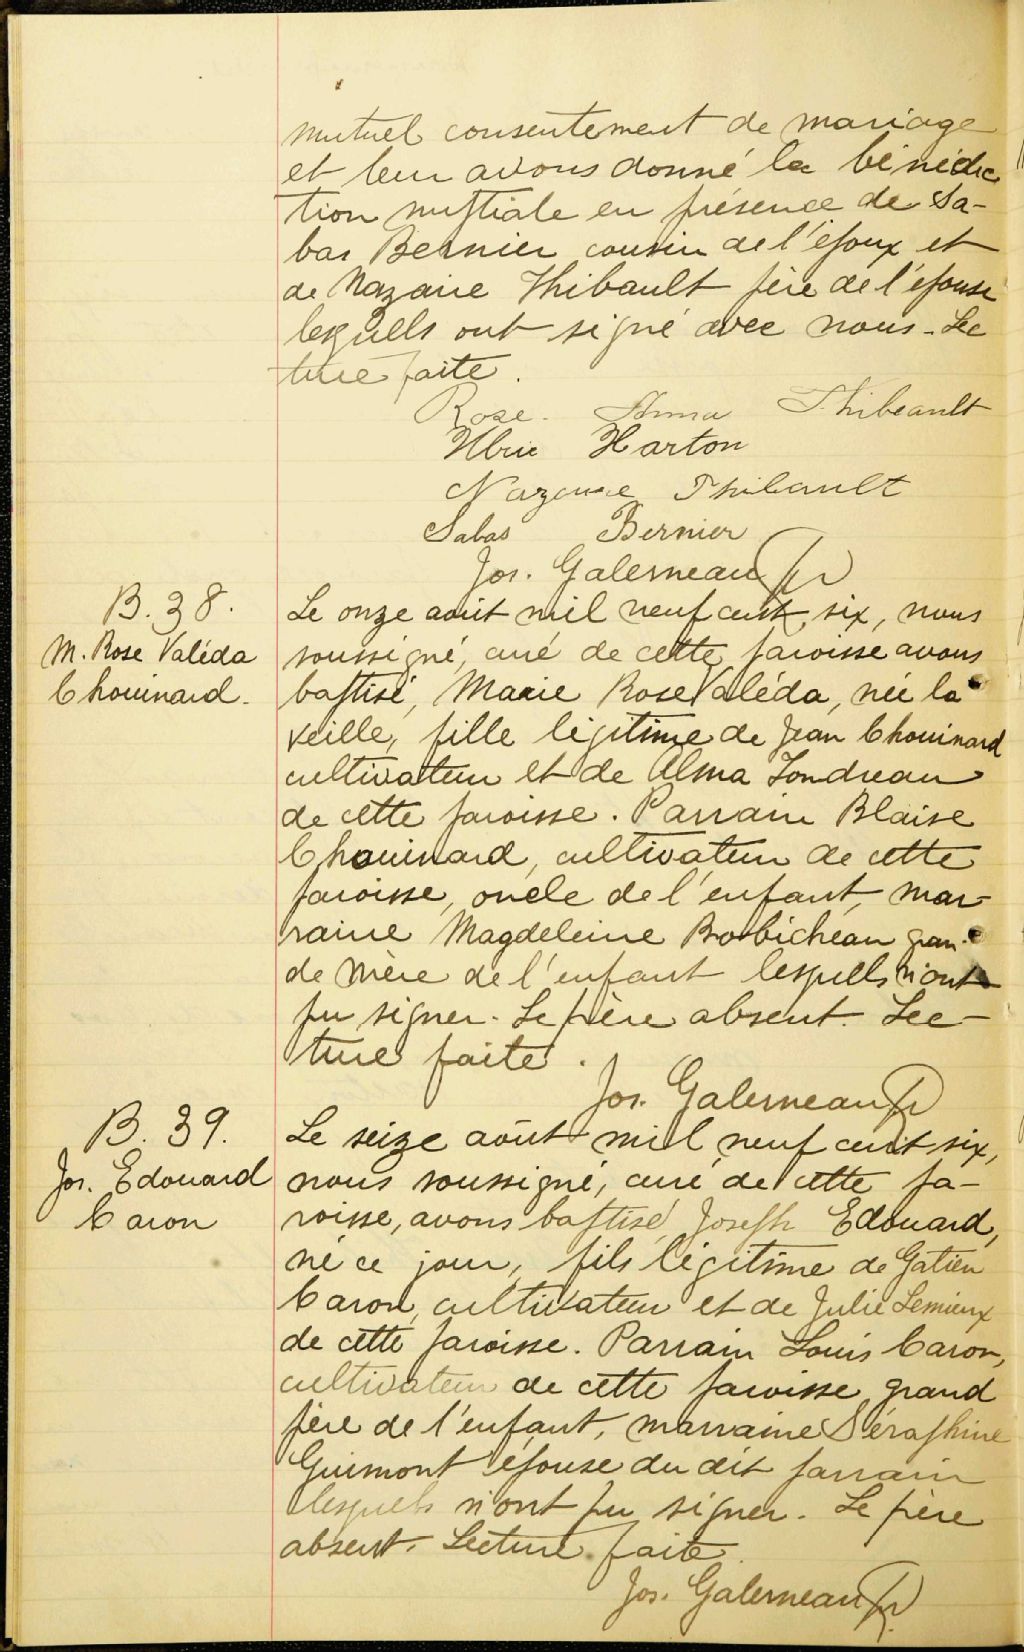 mutuel consentement de mariage
et leur avons donné la bénédic
tion nuptiale en présence de Sa-
bas Bernier cousin de l'époux et
de Nazaire Thibault père de l'épouse
lesquels ont signé avec nous. Lec
ture faite.
Rose. Anna Thibeault
Ulric Harton
Nazaire Thibault
Sabas Bernier
Jos. Galerneau Ptr
B. 38.
M. Rose Valéda
Chouinard.
Le onze août mil neuf cent six, nous
soussigné, curé de cette paroisse avons
baptisé, Marie Rose Valéda, née la
veille, fille légitime de Jean Chouinard
cultivateur et de Alma Jondreau
de cette paroisse. Parrain Blaise
Chouinard, cultivateur de cette
paroisse, oncle de l'enfant, mar-
raine Magdeleine Robicheau gran-
de mère de l'enfant lesquels n'ont
pu signer. Le père absent. Lec-
ture faite.
Jos. Galerneau Ptr
B. 39.
Jos. Edouard
Caron
Le seize août mil neuf cent six,
nous soussigné, curé de cette pa-
roisse, avons baptisé, Joseph Edouard,
né ce jour, fils légitime de Gatien
Caron, cultivateur et de Julie Lemieux
de cette paroisse. Parrain Louis Caron,
cultivateur de cette paroisse grand
père de l'enfant, marraine Séraphine
Guimont épouse du dit parrain
lesquels n'ont pu signer. Le père
absent. Lecture faite.
Jos. Galerneau Ptr